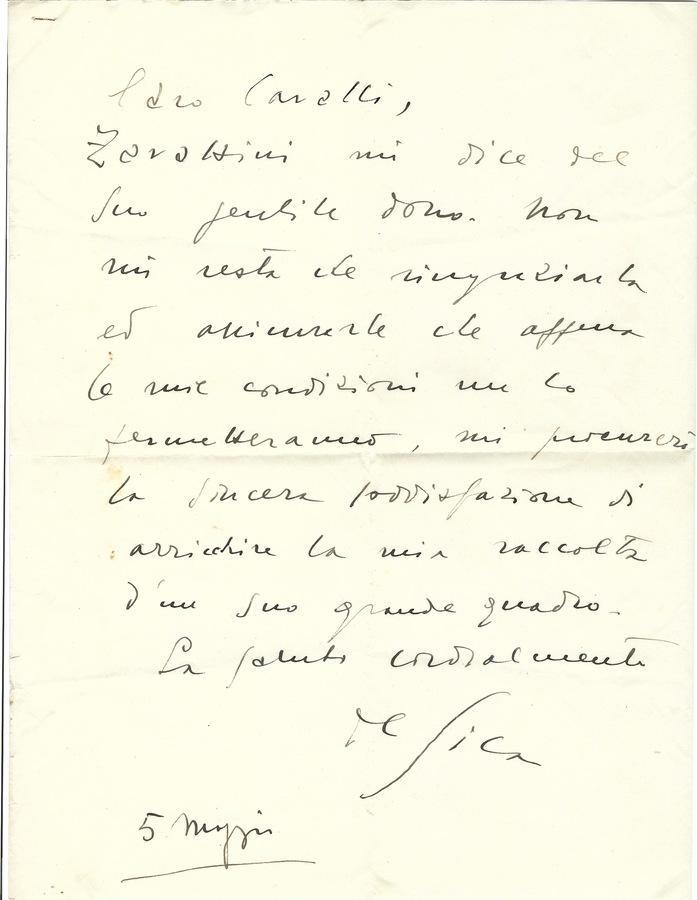 Caro Cavalli,
Zavattini mi dice del
Suo gentile dono. Non
mi resta che ringraziarla
ed assicurarle che appena
le mie condizioni me lo
permetteranno, mi procurerò
la sincera soddisfazione di
arricchire la mia raccolta
d'un Suo grande quadro.
La saluto cordialmente
De Sica
5 Maggio